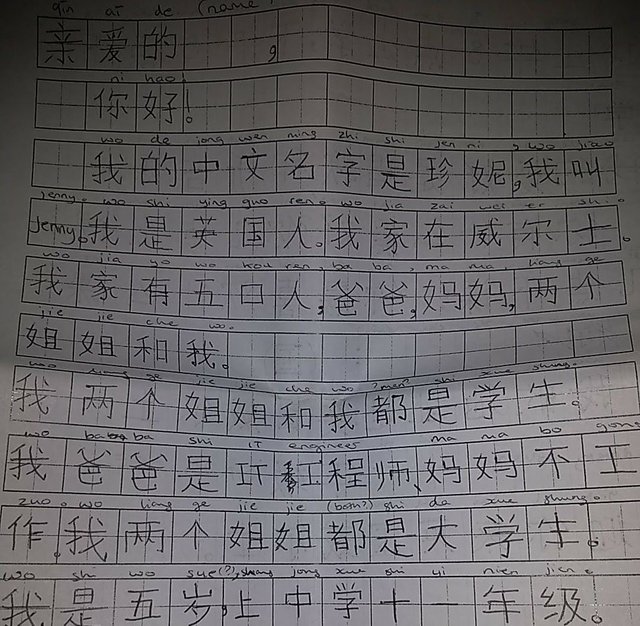 qin ai de (name)
亲爱的 ,
ni hao!
你好!
wo de jong wen ming zhi shi jen ni, wo jiao
我的中文名字是珍妮,我叫
jenny. wo shi ying guo ren. wo jia zai wei er shi.
jenny。我是英国人。我家在威尔士。
wo jia yo wo kou ren, ba ba, ma ma, liang ge
我家有五口人,爸爸,妈妈,两个
jie jie che wo.
姐姐和我。
wo liang ge jie jie che wo "men" shi xue shung.
我两个姐姐和我都是学生。
wo baba ba shi IT engineer ma ma bo gong
我爸爸是IT工程师、妈妈不工
zuo. wo liang ge jie jie (both?) shi da xue shung.
作。我两个姐姐都是大学生。
wo shi wo sue(?), shang jong xue shi yi nien jien.
我是五岁,上中学十一年级。